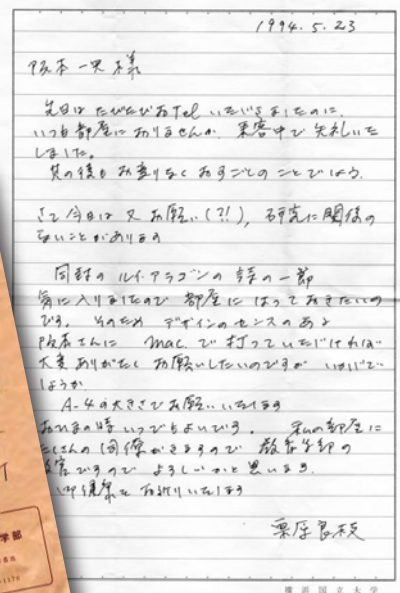 1994.5.23
阪本一 様
先日は たびたびおTel いただきましたのに、
いつも部屋におりませんで 失礼いた
しました。
其の後も お変りなく おすごしのことでしょう。
さて今日は 又 お願い(?!), 研究に関係の
ないことがあります
同封の ルイ・アラゴンの 詩の一部
気に入りましたので 部屋に はっておきたいの
です。そのため デザインのセンスのある
阪本さんに mac. で 打っていただければ
大変ありがたく お願いしたいのですが いかがで
しょうか
A-4の大きさでお願いいたします
おひまの時いつでもよいです。 私の部屋に
たくさんの 同僚がきますので 教育学部の
ですので よろしいかと思います。
御健康を お祈りいたします
栗原良枝
横浜国立大学
学部